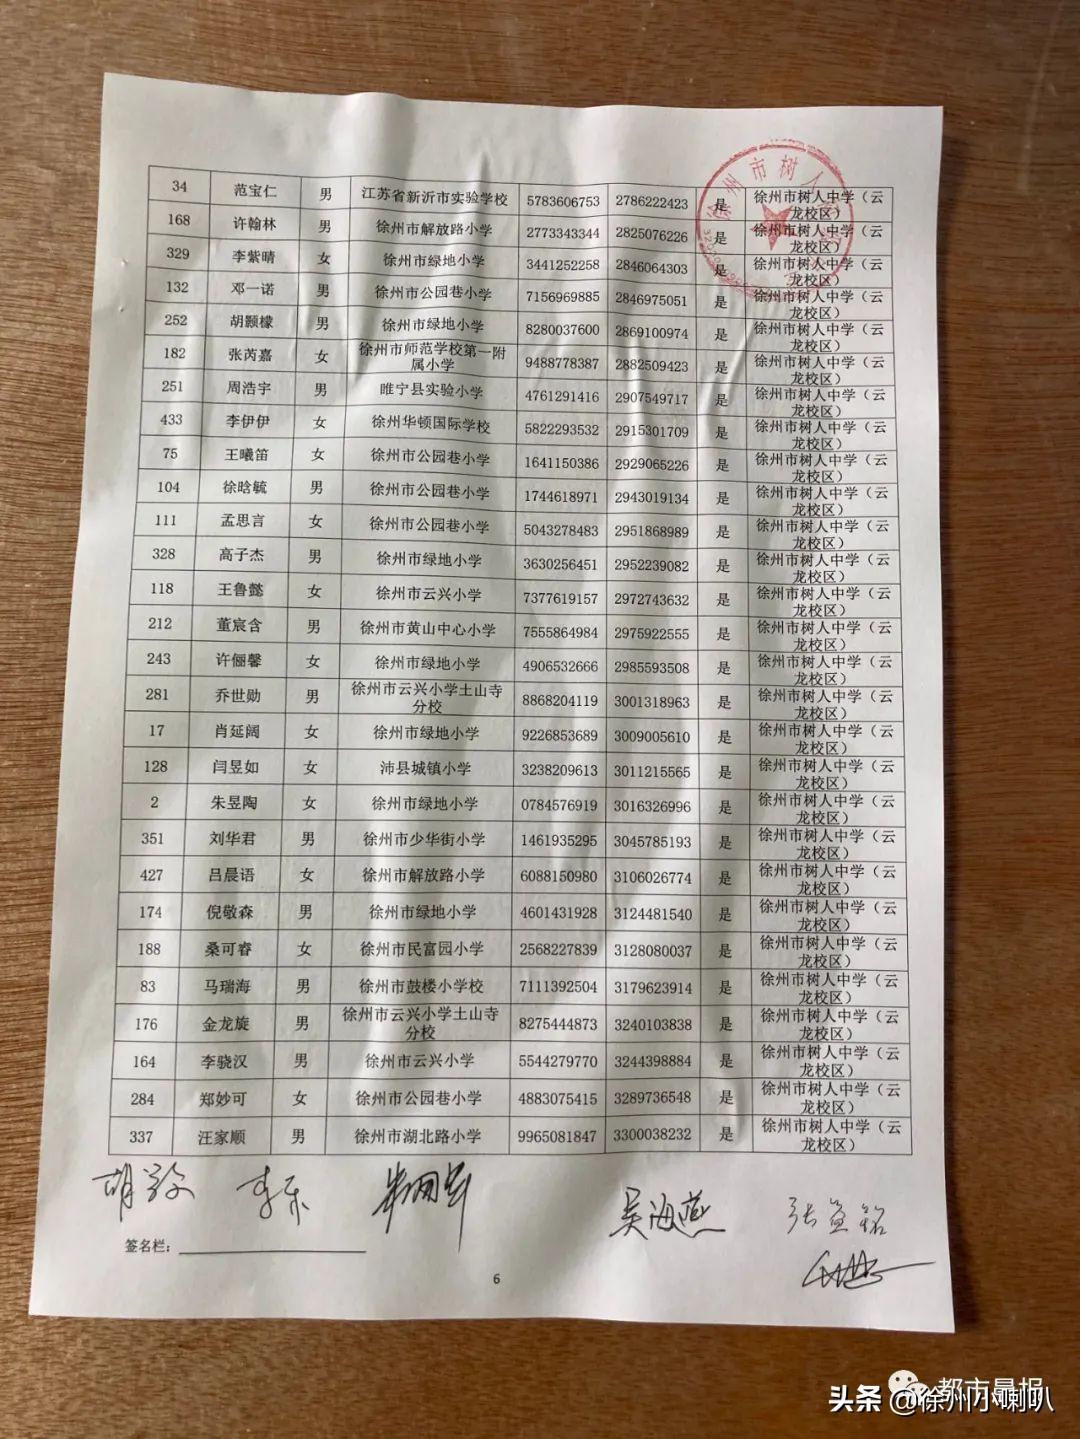 徐州市树人
34 范宝仁 男 江苏省新沂市实验学校 5783606753 2786222423 是 徐州市树人中学（云
龙校区）
168 许翰林 男 徐州市解放路小学 2773343344 2825076226 是 徐州市树人中学（云
龙校区）
329 李紫晴 女 徐州市绿地小学 3441252258 2846064303 是 徐州市树人中学（云
龙校区）
132 邓一诺 男 徐州市公园巷小学 7156969885 2846975051 是 徐州市树人中学（云
龙校区）
252 胡颢檬 男 徐州市绿地小学 8280037600 2869100974 是 徐州市树人中学（云
龙校区）
182 张芮嘉 女 徐州市师范学校第一附 9488778387 2882509423 是 徐州市树人中学（云
属小学 龙校区）
251 周浩宇 男 睢宁县实验小学 4761291416 2907549717 是 徐州市树人中学（云
龙校区）
433 李伊伊 女 徐州华顿国际学校 5822293532 2915301709 是 徐州市树人中学（云
龙校区）
75 王曦笛 女 徐州市公园巷小学 1641150386 2929065226 是 徐州市树人中学（云
龙校区）
104 徐晗毓 男 徐州市公园巷小学 1744618971 2943019134 是 徐州市树人中学（云
龙校区）
111 孟思言 女 徐州市公园巷小学 5043278483 2951868989 是 徐州市树人中学（云
龙校区）
328 高子杰 男 徐州市绿地小学 3630256451 2952239082 是 徐州市树人中学（云
龙校区）
118 王鲁懿 女 徐州市云兴小学 7377619157 2972743632 是 徐州市树人中学（云
龙校区）
212 董宸含 男 徐州市黄山中心小学 7555864984 2975922555 是 徐州市树人中学（云
龙校区）
243 许俪馨 女 徐州市绿地小学 4906532666 2985593508 是 徐州市树人中学（云
龙校区）
281 乔世勋 男 徐州市云兴小学土山寺 8868204119 3001318963 是 徐州市树人中学（云
分校 龙校区）
17 肖延阔 女 徐州市绿地小学 9226853689 3009005610 是 徐州市树人中学（云
龙校区）
128 闫昱如 女 沛县城镇小学 3238209613 3011215565 是 徐州市树人中学（云
龙校区）
2 朱昱陶 女 徐州市绿地小学 0784576919 3016326996 是 徐州市树人中学（云
龙校区）
351 刘华君 男 徐州市少华街小学 1461935295 3045785193 是 徐州市树人中学（云
龙校区）
427 吕晨语 女 徐州市解放路小学 6088150980 3106026774 是 徐州市树人中学（云
龙校区）
174 倪敬森 男 徐州市绿地小学 4601431928 3124481540 是 徐州市树人中学（云
龙校区）
188 桑可睿 女 徐州市民富园小学 2568227839 3128080037 是 徐州市树人中学（云
龙校区）
83 马瑞海 男 徐州市鼓楼小学校 7111392504 3179623914 是 徐州市树人中学（云
龙校区）
176 金龙旋 男 徐州市云兴小学土山寺 8275444873 3240103838 是 徐州市树人中学（云
分校 龙校区）
164 李骁汉 男 徐州市云兴小学 5544279770 3244398884 是 徐州市树人中学（云
龙校区）
284 郑妙可 女 徐州市公园巷小学 4883075415 3289736548 是 徐州市树人中学（云
龙校区）
337 汪家顺 男 徐州市湖北路小学 9965081847 3300038232 是 徐州市树人中学（云
龙校区）
吴海燕
签名栏：
6
都市晨报
头条 @徐州小喇叭